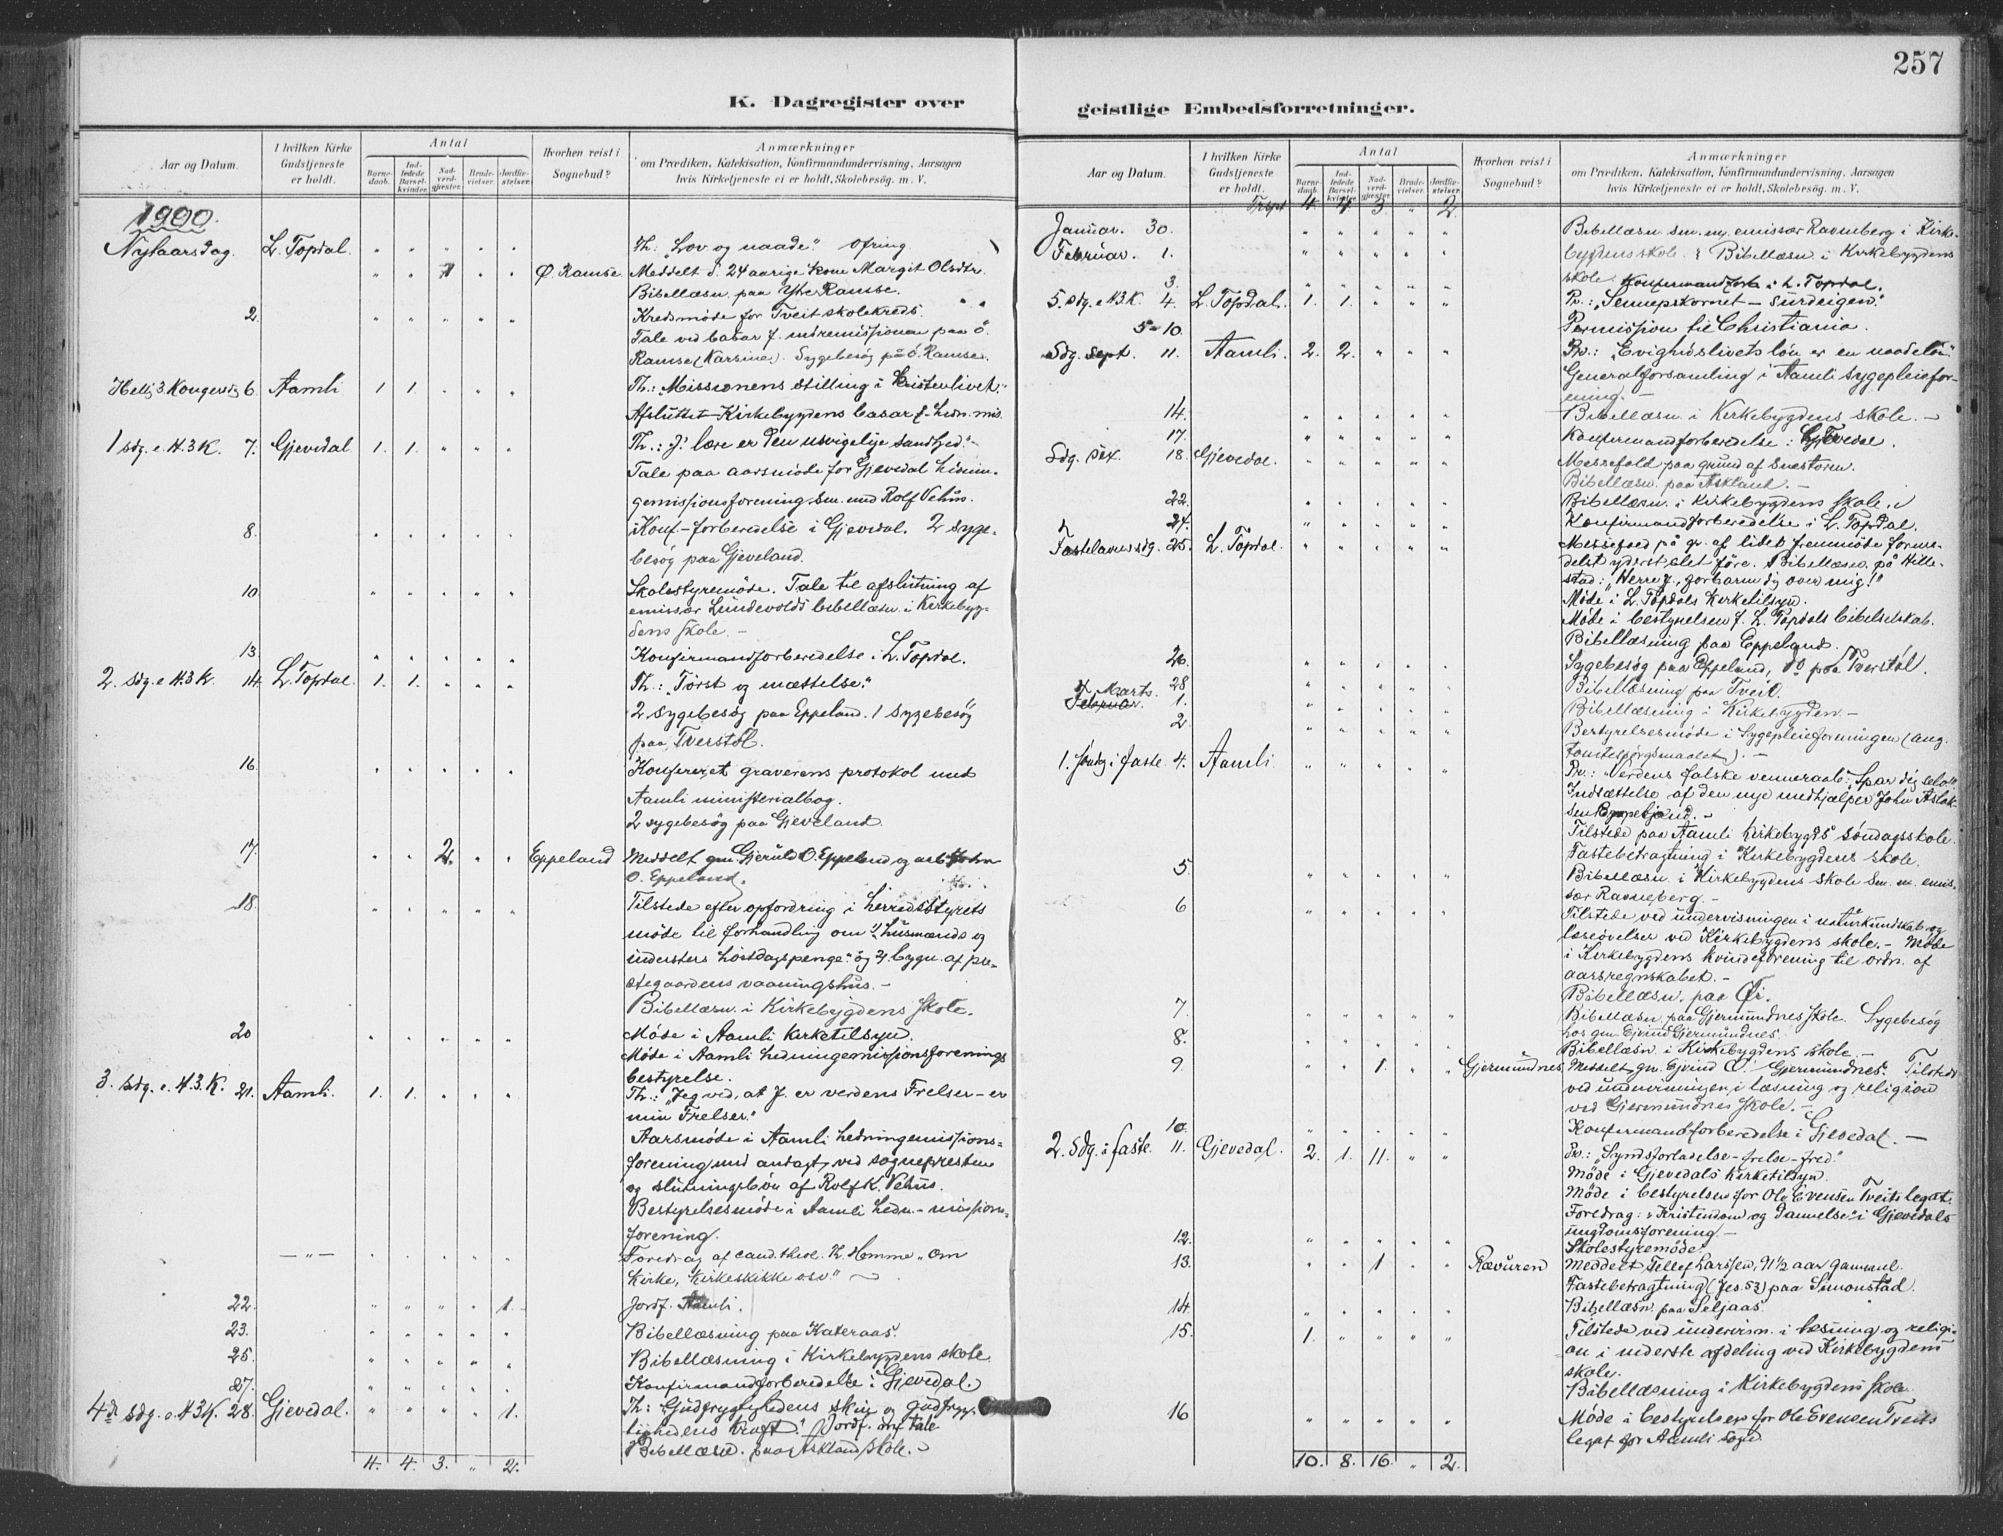 257
K. Dagregister over
geistlige Embedsforretninger.
Aar og Datum.
I hvilken Kirke Gudstjeneste er holdt.
Antal
Barnedaab.
Indledede Barselkvinder.
Nadverdgjester.
Brudevielser.
Jordfæstelser.
Hvorhen reist i Sognebud?
Anmærkninger
om Prædiken, Katekisation, Konfirmandundervisning, Aarsagen
hvis Kirketjeneste ei er holdt, Skolebesøg. m. V.
1900.
Nytaarsdag. L. Topdal. " " " " " Th: "Lov og naade." Ofring
" " 1 " " Ø. Ramse Meddelt s. 24 aarige kone Margit Olsdtr.
Bibellæsn. paa Ytre Ramse.
2. " " " " " Kredsmøde for Tveit skolekreds.
Tale ved basar f. indremissionen paa Ø.
Ramse (Karsine). Sygebesøg på Ø. Ramse.
Hellig 3 Kongersdg 6. Aamli 1. 1. " " " Th.: "Missionens stilling i kristenlivet."
Afsluttet Kirkebygdens basar f. hedn. mis.
1 sdg. e. H.3K. 7. Gjevedal 1. 1. " " " Th.: "J. lære er den usvigelige sandhed."
Tale paa aarsmøde for Gjevedal hednin-
gemissionsforening sm. med Rolf Vehus.
8. " " " " " Konf-forberedelse i Gjevedal. 2 syge-
besøg paa Gjeveland.
10. " " " " " Skolestyremøde. Tale til afslutning af
emissær Lundevolds bibellæsn. i Kirkebyg-
dens skole. -
13. " " " " " Konfirmandforberedelse i L. Topdal.
2. sdg. e. H.3K. 14. L. Topdal. 1. 1. " " " Th.: "Tørst og mættelse."
2 sygebesøg paa Eppeland. 1 sygebesøg
paa Tverstøl.
16. " " " " " Konfereret graverens protokol med
Aamli ministerialbog.
2 sygebesøg paa Gjeveland.
17. " " 2. " " Eppeland Meddelt gm. Gjeruld O. Eppeland og arb. John
O. Eppeland.
18. " " " " " Tilstede efter opfordring i herredsstyrets
møde til forhandling om 1/ husmænds og
indersters høstdagspenge og 2/ bygn. af pre-
stegaardens vaaningshus. -
Bibellæsn. i Kirkebygdens skole.
20 " " " " " Møde i Aamli kirketilsyn.
Møde i Aamli hedningemissionsforenings
bestyrelse.
3. sdg. e. H.3.K. 21. Aamli. 1. 1. " " " Th.: "Jeg ved, at J. er verdens Frelser - er
min Frelser."
Aarsmøde i Aamli hedningemissions-
forening med andagt ved sognepresten
og slutningsbøn af Rolf K. Vehus.
Bestyrelsesmøde i Aamli hedn.-missions-
forening.
— " — " " " " " Foredrag af cand. theol. Th. Homme "om
Kirke, Kirkeskikke osv"
22. " " " " 1. Jordf. Aamli.
23. " " " " " Bibellæsning paa Kateraas.
25. " " " " " Bibellæsning i Kirkebygdens skole.
27. " " " " " Konfirmandforberedelse i Gjevedal.
4d sdg. e. H3K. 28. Gjevedal. " " " " 1. Th: Gudfrygtighedens skin og gudfryg-
tighedens kraft. Jordf. m. tale
Bibellæsn. paa Askland skole.
4. 4. 3. " 2.
Aar og Datum.
I hvilken Kirke Gudstjeneste er holdt.
Antal
Barnedaab.
Indledede Barselkvinder.
Nadverdgjester.
Brudevielser.
Jordfæstelser.
Hvorhen reist i Sognebud?
Anmærkninger
om Prædiken, Katekisation, Konfirmandundervisning, Aarsagen
hvis Kirketjeneste ei er holdt, Skolebesøg. m. V.
Trspt 4. 4. 3. " 2.
Januar. 30. " " " " " Bibellæsn. sm. m. emissær Ravneberg i Kirke-
Februar. 1. " " " " " bygdens skole. Bibellæsn. i Kirkebygdens
skole.
3. " " " " " Konfirmandforb. i L. Topdal.
5. sdg. e. H3.K. 4. L. Topdal. 1. 1. " " " Pr.: "Sennepskornet - surdeigen."
5-10. Permission til Christiania.
Sdg. sept. 11. Aamli. 2. 2. " " " Pr.: "Evighedslivets løn er en naadeløn"
Generalforsamling i Aamli sygepleiefor-
ening. -
14. " " " " " Bibellæsn. i Kirkebygdens skole. -
17. " " " " " Konfirmandforberedelse i Gjevedal.
Sdg. sex. 18. Gjevedal. " " " " " Messefald paa grund af snestorm.
Bibellæsn. paa Askland. -
22. " " " " " Bibellæsn. i Kirkebygdens skole.
24. " " " " " Konfirmandforberedelse i L. Topdal.
Fastelavnssdg. 25. L. Topdal. " " " " " Messefald på gr. af lidet fremmøde forme-
delst yderst slet føre. Bibellæsn. på Hille-
stad: "Herre J., forbarm dig over mig!"
Møde i L. Topdals kirketilsyn.
Møde i bestyrelsen f. L. Topdals bibelselskab.
Bibellæsning paa Eppeland.
26. " " " " " Sygebesøg paa Eppeland, do paa Tverstøl.
28 " " " " " Bibellæsning paa Tveit.
Marts. Februar. 1. " " " " " Bibellæsning i Kirkebygden. -
2. " " " " " Bestyrelsesmøde i Sygepleieforeningen (ang.
tomtespørgsmaalet). -
1. søndg i faste. 4. Aamli. " " " " " Pr.: "Verdens falske venneraab: "Spar dig selv!"
Indsættelse af den nye medhjælper John Aslak-
sen
Tilstede paa Aamli Kirkebygds søndagsskole.
Fastebetragtning i Kirkebygdens skole.
5. " " " " " Bibellæsn. i Kirkebygdens skole sm. m. emis-
sær Ravneberg. -
6 " " " " " Tilstede ved undervisningen i naturkundskab og
læseøvelser ved Kirkebygdens skole. - Møde
i Kirkebygdens kvindeforening til ordn. af
aarsregnskabet. -
Bibellæsn. paa Øi.
7. " " " " " Bibellæsn. paa Gjermundnes skole. Sygebesøg
hos gm. Eivind Gjermundnes.
8. " " " " " Bibellæsn. i Kirkebygdens skole. -
9. " " 1. " " Gjermundnes. Meddelt gm. Eivind O. Gjermundnes. Tilstede
ved undervisningen i læsning og religion
ved Gjermundnes skole. -
10. " " " " " Konfirmandforberedelse i Gjevedal. -
2. sdg. i faste. 11. Gjevedal. 2. 1. 11. " " Pr.: "Syndsforladelse-frelse-fred."
Møde i Gjevedals kirketilsyn.
Møde i bestyrelsen for Ole Evensen Tveits legat.
Foredrag: "Kristendom og dannelse" i Gjevedals
ungdomsforening. -
12. " " " " " Skolestyremøde.
13. " " 1 " " Rævuren Meddelt Tellef Larssen, 91 1/2 aar gammel.
Fastebetragtning (Jes. 53) paa Simonstad.
14. " " " " " Bibellæsn. paa Seljaas.
15. 1. " " " " Tilstede ved undervisn. i læsning og religi-
on i nederste afdeling ved Kirkebygdens
skole.
Bibellæsning i Kirkebygdens skole.
16 " " " " " Møde i bestyrelsen for Ole Evensen Tveits
legat for Aamli sogn.
10. 8. 16. " 2.